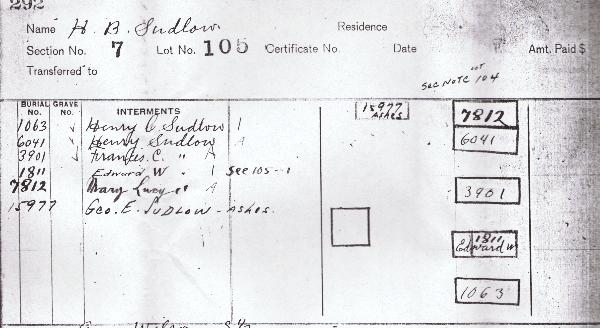 292
Name H. B. Sudlow Residence
Section No. 7 Lot No. 105 Certificate No. Date Amt. Paid $
Transferred to
SEE NOTE LOT 104
BURIAL NO. GRAVE NO. INTERMENTS
1063 ✓ Henry C. Sudlow 1
6041 ✓ Henry Sudlow A
3901 ✓ Frances C. " A
1811 Edward W " 1 See 105-1
7812 Mary Lucy " A
15977 Geo. E. SUDLOW - ASHES.
15977 ASHES
7812
6041
3901
1811
Edward W
1063